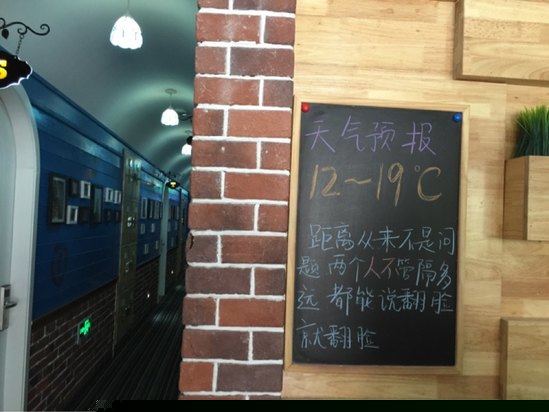 天气预报
12～19℃
距离从来不是问
题两个人不管隔多
远都能说翻脸
就翻脸